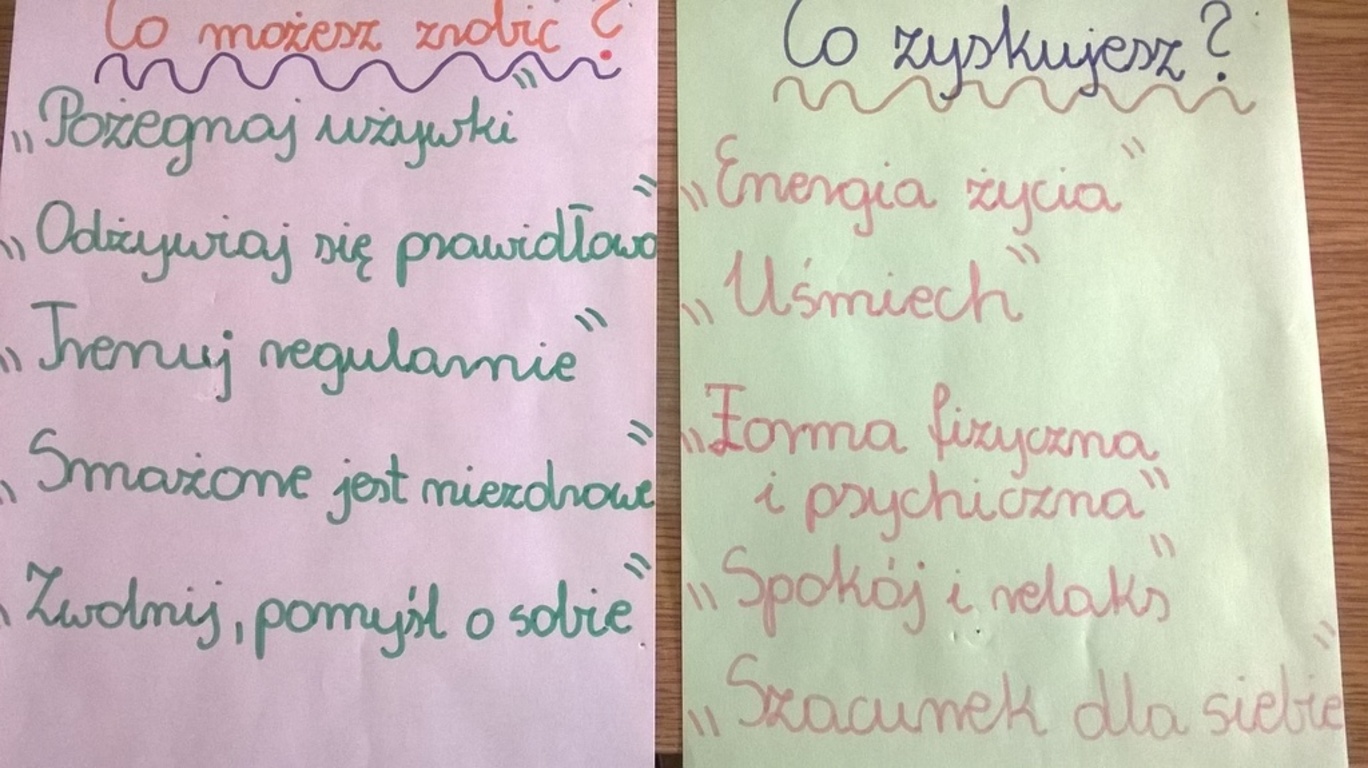 Co możesz zrobić?
„Pożegnaj używki”
„Odżywiaj się prawidłowo”
„Trenuj regularnie”
„Smażone jest niezdrowe”
„Zwolnij, pomyśl o sobie”
Co zyskujesz?
„Energia życia”
„Uśmiech”
„Forma fizyczna
i psychiczna”
„Spokój i relaks”
„Szacunek dla siebie”